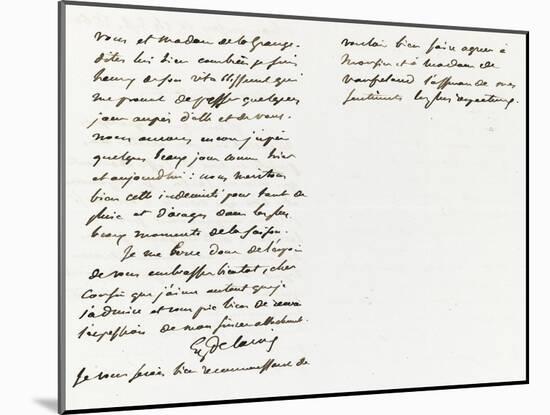 vous et madame de la Grange.
dites lui bien combien je suis
heureux de son rétablissement qui
me permet de passer quelques
jours auprès d'elle et de vous.
nous aurons encore j'espère
quelques beaux jours comme hier
et aujourdhui : nous méritons
bien cette indemnité pour tant de
pluie et d'orages dans les plus
beaux moments de la saison.
Je me borne donc de l'espoir
de vous embrasser bientot, cher
Cousin que j'aime autant que je
l'admire et vous prie bien de recevoir
l'expression de mon sincère attachement.
Eug Delacroix
Je vous serais bien reconnaissant de
vouloir bien faire agréer à
Monsieur et à madame de
l'assurance de mes
sentiments les plus respectueux.